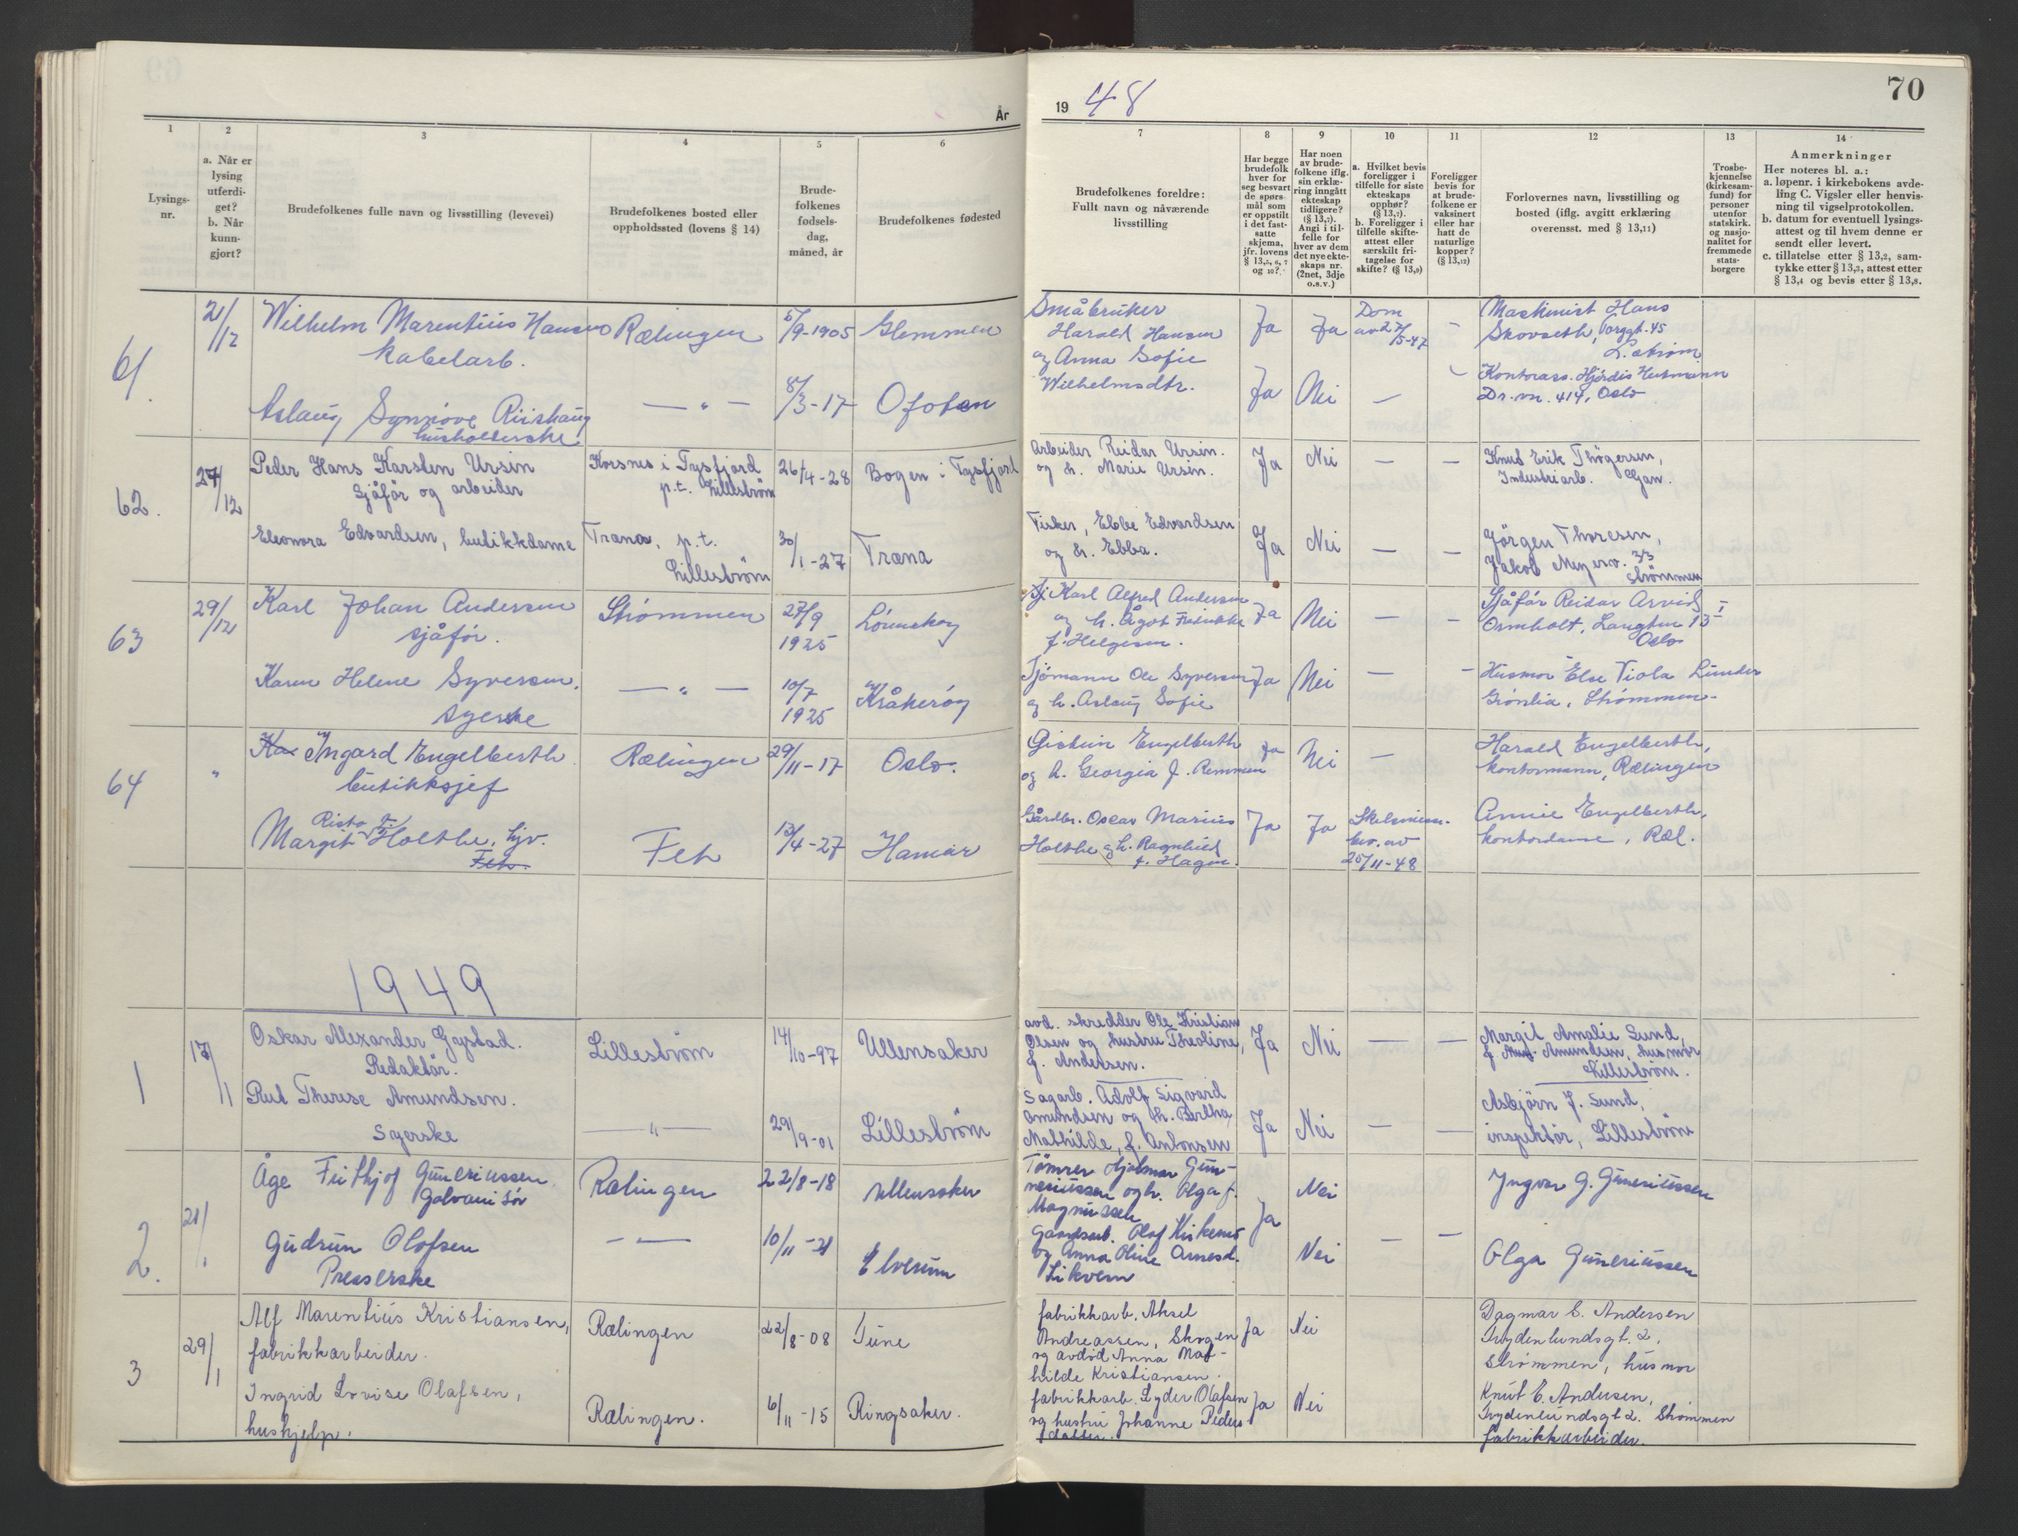 År
19 48
70
1
2
3
4
5
6
7
8
9
10
11
12
13
14
Lysings-
nr.
a. Når er
lysing
utferdi-
get?
b. Når
kunn-
gjort?
Brudefolkenes fulle navn og livsstilling (levevei)
Brudefolkenes bosted eller
oppholdssted (lovens § 14)
Brude-
folkenes
fødsels-
dag,
måned, år
Brudefolkenes fødested
Brudefolkenes foreldre:
Fullt navn og nåværende
livsstilling
Har begge
brudefolk
hver for
seg besvart
de spørs-
mål som
er oppstilt
i det fast-
satte
skjema,
jfr. lovens
§ 13,5, 6, 7
og 10?
Har noen
av brude-
folkene iflg.
sin erklæ-
ring inngått
ekteskap
tidligere?
(§ 13,7).
Angi i til-
felle for
hver av dem
det nye ekte-
skaps nr.
(2net, 3dje
o.s.v.)
a. Hvilket bevis
foreligger i
tilfelle for siste
ekteskaps
opphør?
(§ 13,7)
b. Foreligger i
tilfelle skifte-
attest eller
særskilt fri-
tagelse for
skifte? (§ 13,9)
Foreligger
bevis for
at brude-
folkene er
vaksinert
eller har
hatt de
naturlige
kopper?
(§ 13,12)
Forlovernes navn, livsstilling og
bosted (iflg. avgitt erklæring
overensst. med § 13,11)
Trosbe-
kjennelse
(kirkesam-
fund) for
personer
utenfor
statskirk.
og nasjo-
nalitet for
fremmede
stats-
borgere
Anmerkninger
Her noteres bl. a.:
a. løpenr. i kirkebokens avde-
ling C. Vigsler eller henvis-
ning til vigselprotokollen.
b. datum for eventuell lysings-
attest og til hvem denne er
sendt eller levert.
c. tillatelse etter § 13,2, sam-
tykke etter § 13,3, attest etter
§ 13,4 og bevis etter § 13,8.
61.
21/12
Wilhelm Marentius Hansen
kabelarb.
Rælingen
5/9-1905
Glemmen
Småbruker
Harald Hansen
og Anna Sofie
Wilhelmsdtr.
Ja
Ja
Dom
av 27/5-47
–
Maskinist Hans
Skovseth, Torggt. 45
L.strøm
Aslaug Synnøve Riishaug
husholderske
— " —
8/3-17
Ofoten
Ja
Nei
—
–
Kontorass. Hjørdis
Dr. m. 414, Oslo
62.
27/12
Peder Hans Karsten Ursin
Sjåfør og arbeider
Korsnes i Tysfjord
p.t. Lillestrøm
26/4-28
Bogen i Tysfjord
Arbeider Reidar Ursin.
og h. Marie Ursin.
Ja
Nei
—
–
Knut Erik Thøgersen,
Industriarb. Gan.
Eleonora Edvardsen, butikkdame
Træna, p.t.
Lillestrøm
30/1-27
Træna
Fisker, Ebbe Edvardsen
og h. Ebba.
Ja
Nei
—
–
Jørgen Thoresen,
Jakob Meyersv. 33
Strømmen
63
29/12
Karl Johan Andersen
sjåfør.
Strømmen
27/9
1925
Lørenskog
Sj. Karl Alfred Andersen
og h. Ågot Fredrikke
f. Helgesen.
Ja
Nei
—
–
Sjåfør Reidar Arvid
Ormholt, Langtun 13
Oslo
Karen Helene Syversen.
syerske
— " —
10/7
1925
Kråkerøy
Sjømann Ole Syversen
og h. Aslaug Sofie
Ja
Nei
—
–
Husmor Else Viola Lunder
Grønlia, Strømmen
64
"
Yngard Engelberth
butikksjef
Rælingen
29/11-17
Oslo.
Engelberth
og h. Georgia f. Remmen
Ja
Nei
—
Harald Engelberth,
kontormann, Rælingen
Margit Holthe, hjv.
Fet
Fet
13/4-27
Hamar
Gårdbr. Oscar Marius
Holthe og h. Ragnhild
f. Hagen.
Ja
Ja
Skilsmisse-
bev. av
25/11-48
Annie Engelberth,
kontordame, Ræl.
1949
1
17/1
Oskar Alexander Gystad.
Redaktør.
Lillestrøm
14/10-97
Ullensaker
avd. skredder Ole Kristian
Olsen og hustru Theoline,
f. Andersen.
Ja
Nei
—
—
Margit Amalie Sund,
f. Amundsen, husmor
Lillestrøm.
Rut Therese Amundsen.
Syerske
— " —
29/9-01
Lillestrøm
Sagarb. Adolf Sigvard
Amundsen og h. Bertha
Mathilde, f. Antonsen
Ja
Nei
—
—
Asbjørn J. Sund,
inspektør, Lillestrøm
2.
21/1
Åge Frithjof Guneriussen
Galvanisør
Rælingen
22/8-18
Ullensaker
Tømrer Hjalmar Gun-
neriussen og h. Olga f.
Magnussen
Ja
Nei
Yngvar G. Guneriussen
Gudrun Olofsen
Presserske
— " —
10/11-21
Elverum
Gaardsarb. Olof Kiskemo
og Anna Oline Arnesd.
Likvern
Nei
—
–
Olga Guneriussen
3
29/1
Alf Marentius Kristiansen,
fabrikkarbeider.
Rælingen
22/8-08
Tune
fabrikkarb. Aksel
Andreassen, Skogen
og avdød Anna Mat-
hilde Kristiansen.
Ja
Nei
Dagmar E. Andersen
Frydenlundsgt. 2.
Strømmen, husmor
Ingrid Lovise Olafsen,
hushjelp.
Rælingen.
6/11-15
Ringsaker.
fabrikkarb. Lyder Olafsen
og hustru Johanne Peders-
datter.
Ja
Nei
Knut E. Andersen,
Frydenlundsgt 2. Strømmen
fabrikkarbeider.